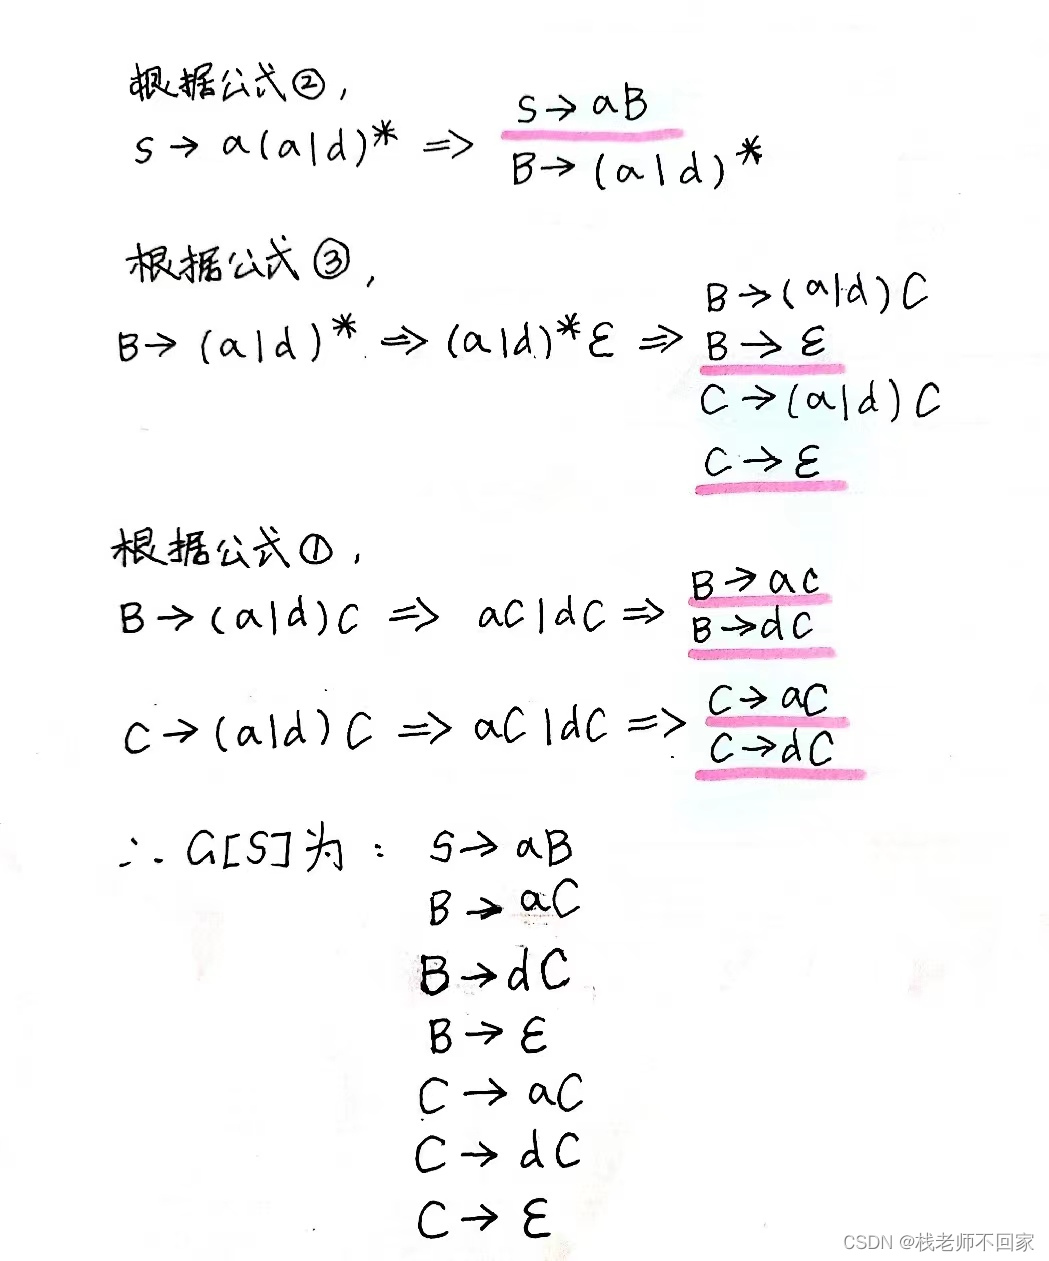 根据公式②,
S → a(a|d)* => S → aB
B → (a|d)*
根据公式③,
B → (a|d)* => (a|d)*ε => B → (a|d)C
B → ε
C → (a|d)C
C → ε
根据公式①,
B → (a|d)C => aC|dC => B → aC
B → dC
C → (a|d)C => aC|dC => C → aC
C → dC
∴ G[S]为: S → aB
B → aC
B → dC
B → ε
C → aC
C → dC
C → ε
CSDN @栈老师不回家